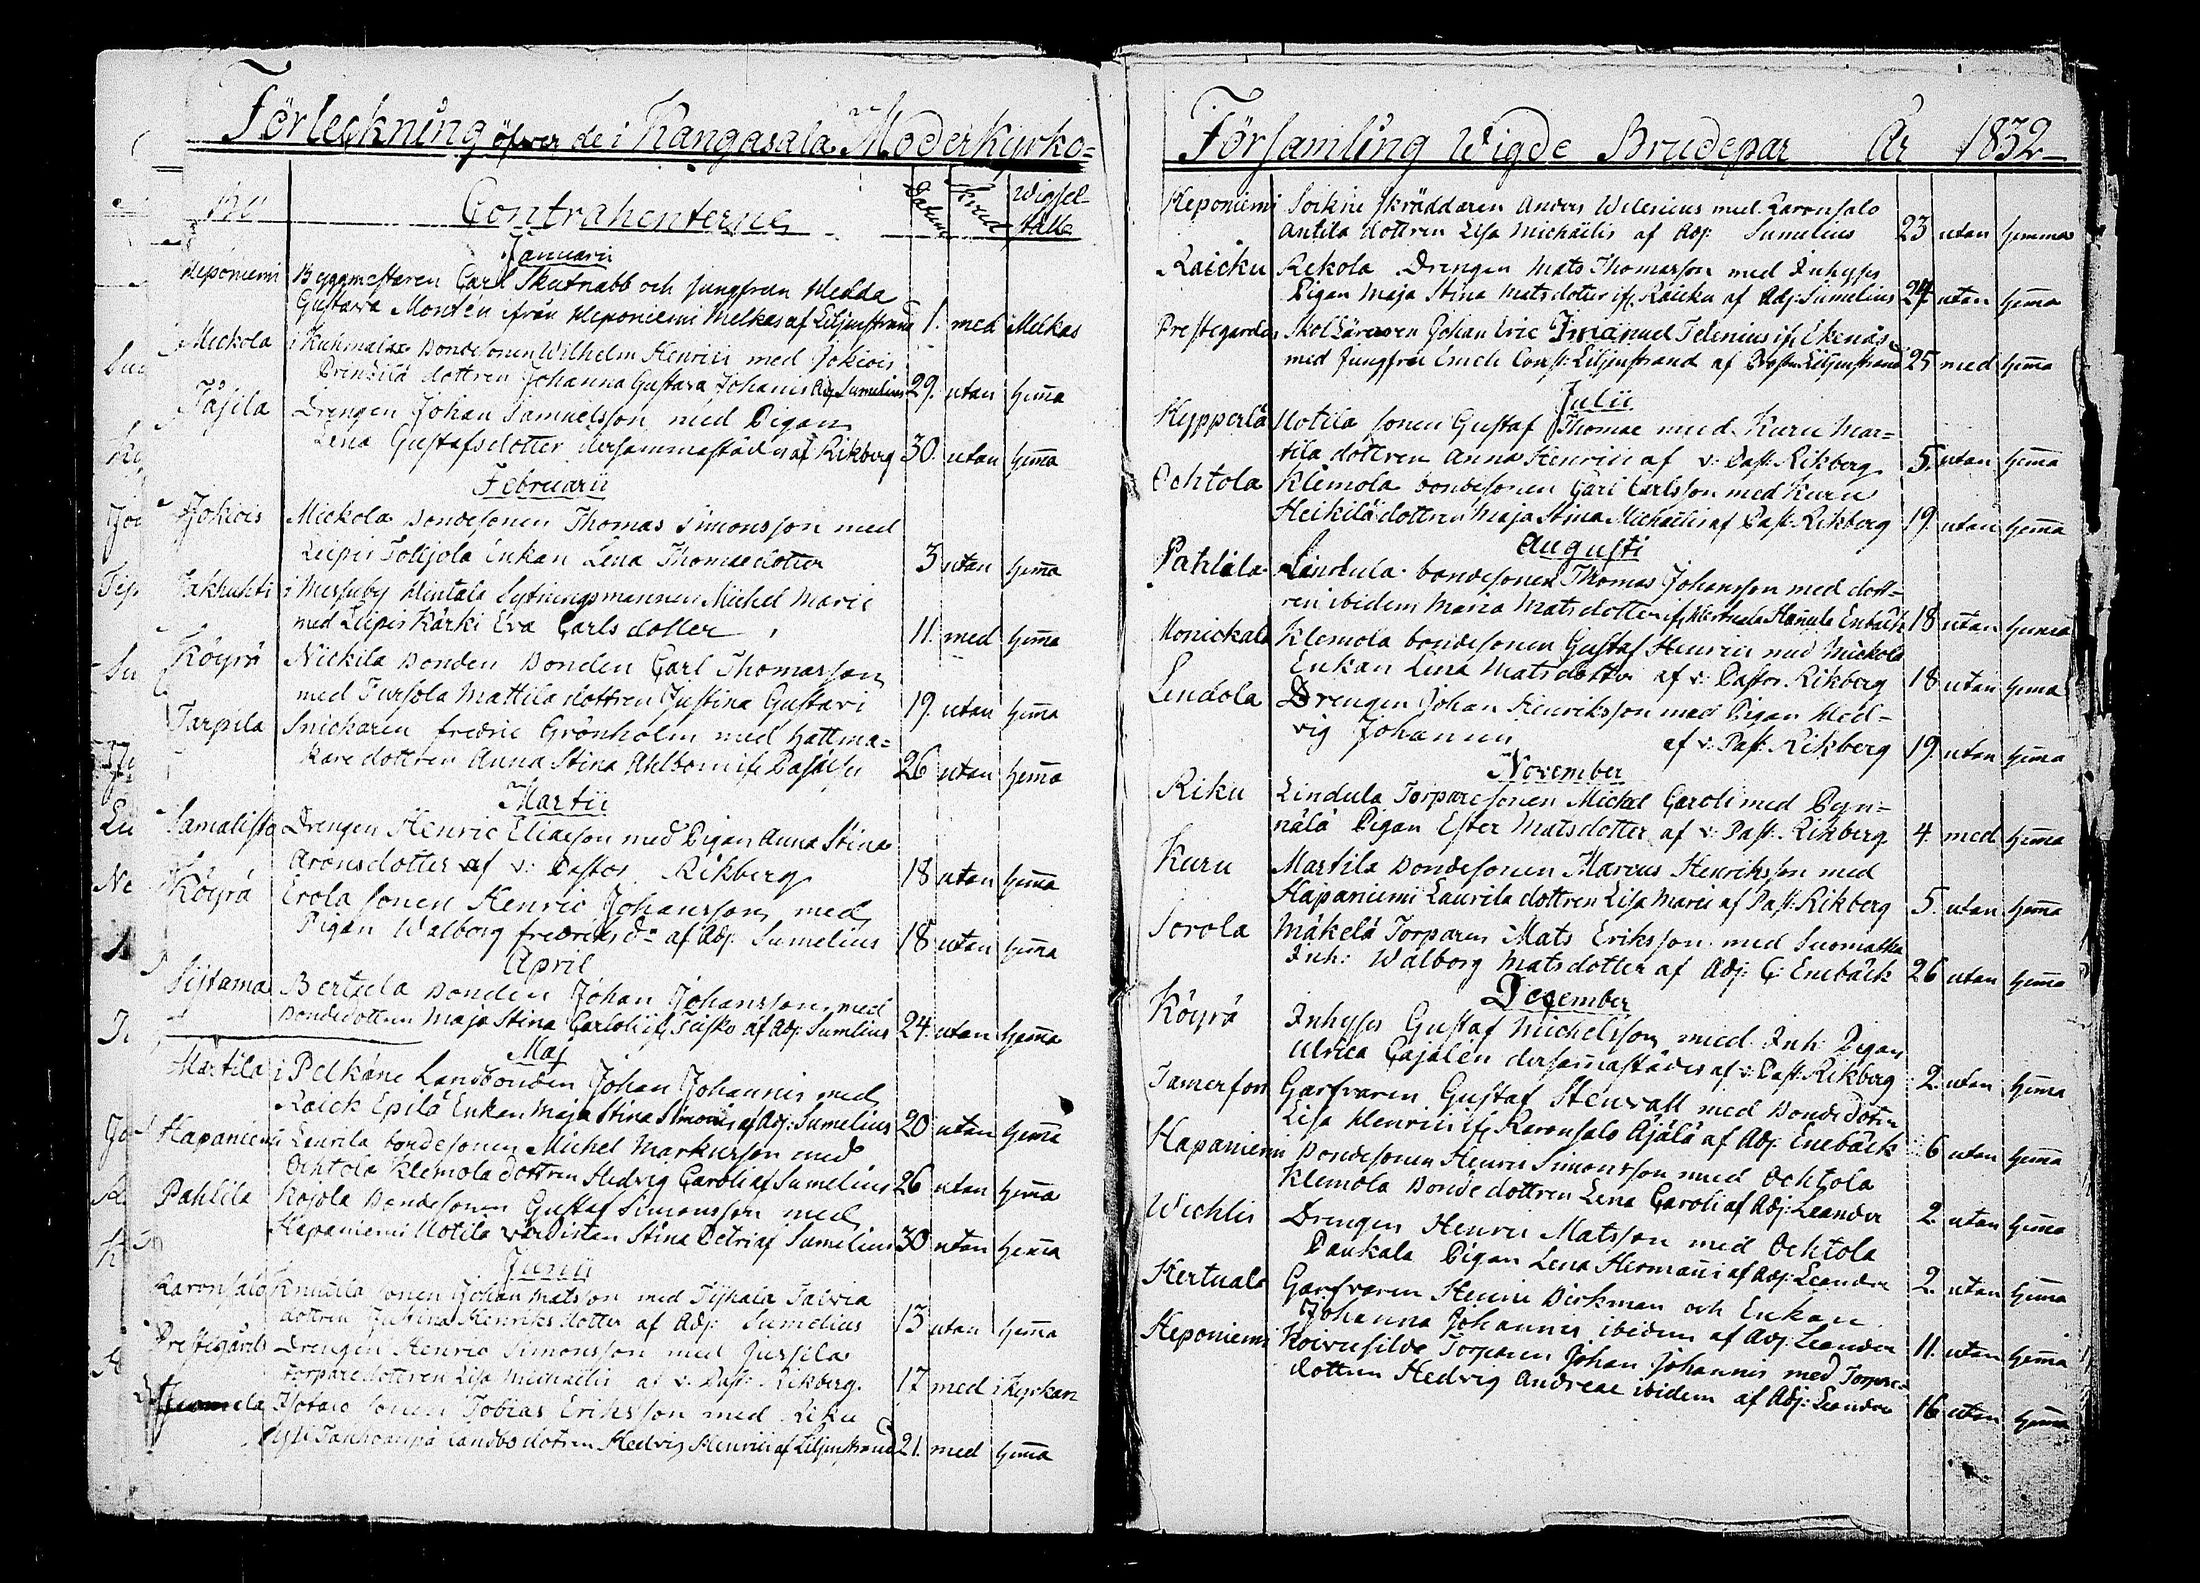 Förteckning öfver de i Kangasala Moderkyrko=
By Contrahenterne Datum Krud Wigsel ställe
Januarii
Heponiemi Byggmestaren Carl Skutnabb och Jungfrun Hedda
Gustava Montén ifrån Heponiemi Melkas af Liljenstrand 1. med i Melkas
Mickola i Kuhmalax Bondesonen Wilhelm Henrici med Jokiois
Prensilä dottren Johanna Gustava Johannis Adj Sumelius 29. utan hema
Tåjila Drengen Johan Samuelsson med Pigan
Lena Gustafsdotter dersammastädes af Rikberg 30. utan hema
Februarii
Jokiois Mickola Bondesonen Thomas Simonsson med
Leipis Tolijola Enkan Lena Thomaedotter 3 utan hema
Jakhuhti i Messuby Hintala Sytningsmannen Michel Marie
med Leipis Kärki Eva Carlsdotter 11. med hema
Köyrä Nickila Bonden Bonden Carl Thomasson
med Tursola Mattila dottren Justina Gustavi 19. utan hema
Tarpila Snickaren Fredric Grönholm med hattma=
kare dottren Anna Stina Ahlbom if. 26 utan hema
Martii
Samatista Drengen Henric Eliasson med Pigan Anna Stina
Aronsdotter af v: Pastor Rikberg 18 utan hema
Köyrä Erola sonen Henric Johansson med
Pigan Walborg Fredriksdr af Adj. Sumelius 18 utan hema
April
Sijtama Bertzela Bonden Johan Johansson med
Bondedottren Maja Stina Caroli if. Tiisko af Adj Sumelius 24. utan hema
Maj
Martila i Pelkäne Landbonden Johan Johannis med
Raick Epilä Enkan Maja Stina Simonis af Adj: Sumelius 20 utan hema
Hapaniemi Laurila bondesonen Michel Markusson med
Ochtola Klemola dottren Hedvig Caroli af Sumelius 26 utan hema
Pahlila Kojola Bondesonen Gustaf Simonsson med
Hapaniemi Uotila värdistan Stina Petri af Sumelius 30 utan hema
Junii
Raronsalo Knuutila sonen Johan Matsson med Tijhala Talvia
dottren Justina Henriksdotter af Adj: Sumelius 13 utan hema
Prestegårds Drengen Henric Simonsson med Jussila
Torparedottren Lisa Michaelis af v: Past: Rikberg. 17 med i Kyrkan
Yotaio sonen Tobias Eriksson med Riku
Yli Tanhuanpä landbodottren Hedvig Henrici af Liljenstrand 21. med hema
Församling Wigde Brudepar År 1832
Heponiemi Soikie skräddaren Anders Wilenius med Raronsalo
Antila dottren Lisa Michaelis af Adj: Sumelius 23 utan hemma
Raicku Rekola Drengen Mats Thomasson med Inhyses
Pigan Maja Stina Matsdotter if. Raicku af Adj: Sumelius 24 utan hema
Prestegården Skolläraren Johan Eric Imanuel Telenius if. Ekenäs
med Jungfru Const: Liljenstrand af Prosten Liljenstrand 25 med hema
Julii
Kypperlä Uotila sonen Gustaf Thomae med Kuru Mar=
tila dottren Anna Henrici af v: Past: Rikberg 5. utan hema
Ochtola Klemola bondesonen Carl Carlsson med Kuru
Heikilä dottren Maja Stina Michaelis af Past: Rikberg 19. utan hema
Augusti
Pahlila Lindula bondesonen Thomas Johansson med dott=
ren ibidem Maria Matsdotter if. Hertuala Hanula Enbäck 18 utan hema
Uonickala Klemola bondesonen Gustaf Henrici med Mickola
Enkan Lena Matsdotter af v: Pastor Rikberg 18 utan hema
Lendola Drengen Johan Henriksson med Pigan Hed=
vig Johannis af v: Past: Rikberg 19. utan hema
November
Riku Lindula Torparesonen Michel Caroli med Pyn=
nälä Pigan Ester Matsdotter af v: Past: Rikberg. 4. med hema
Kuru Martila Bondesonen Marcus Henriksson med
Hapaniemi Laurila dottren Lisa Marci af Past: Rikberg 5. utan hema
Sorola Mäkelä Torparen Mats Eriksson med Suomatka
Inh: Walborg Matsdotter af Adj: C: Enebäck 26 utan hema
December
Köyrä Inhyses Gustaf Michelsson med Inh: Pigan
Ulrica Cajalén dersamastädes af v: Past: Rikberg 2. utan hema
Tamerfors Garfvaren Gustaf Stenvall med Bondedottr.
Lisa Henrici if. Raronsalo Äjälä af Adj: Enebäck 6 utan hema
Hapaniemi Bondesonen Henric Simonsson med Ochtola
Klemola Bondedottren Lena Caroli af Adj: Leander 2. utan hema
Wechlis Drengen Henric Matsson med Ochtola
Paukala Pigan Lena Hermani af Adj: Leander 2. utan hema
Hertuala Garfvaren Henric Birkman och Enkan
Johanna Johannis ibidem af Adj: Leander 11. utan hema
Heponiemi Koivusilda Torparen Johan Johannis med Torpare=
dottren Hedvig Andreae ibidem af Adj: Leander 16 utan hema